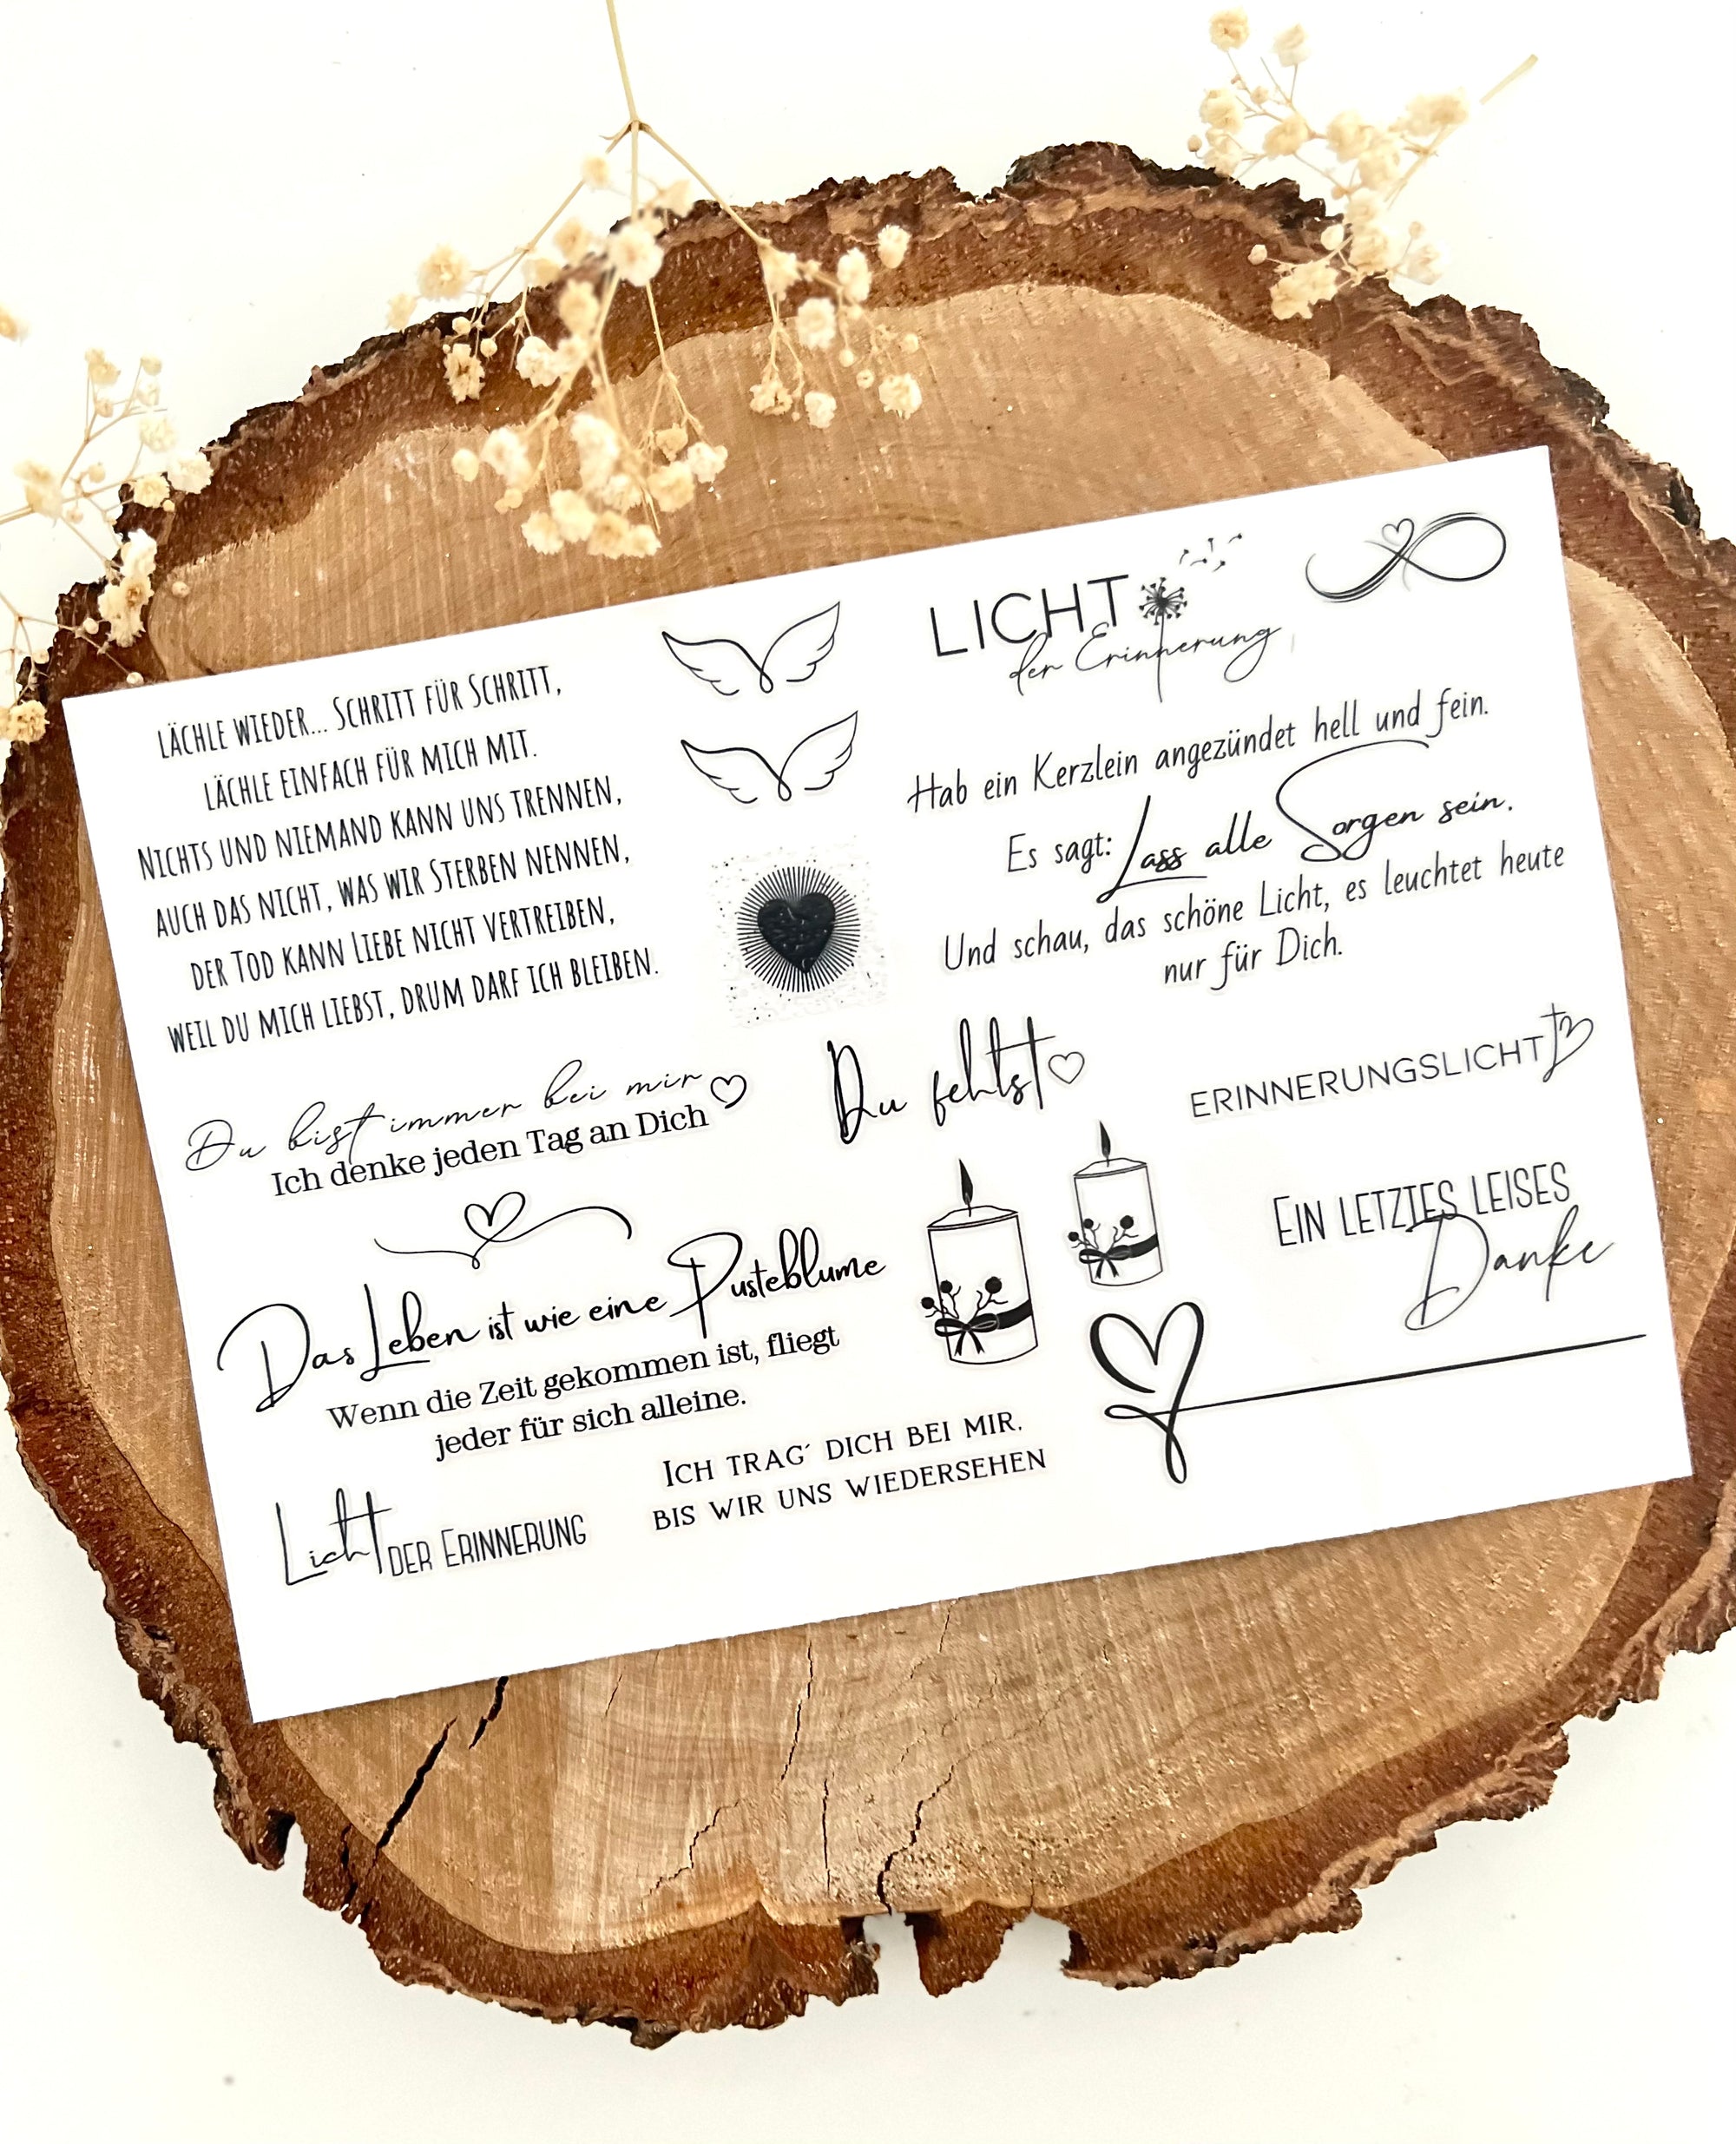 LÄCHLE WIEDER... SCHRITT FÜR SCHRITT,
LÄCHLE EINFACH FÜR MICH MIT.
NICHTS UND NIEMAND KANN UNS TRENNEN,
AUCH DAS NICHT, WAS WIR STERBEN NENNEN,
DER TOD KANN LIEBE NICHT VERTREIBEN,
WEIL DU MICH LIEBST, DRUM DARF ICH BLEIBEN.
LICHT
der Erinnerung
Hab ein Kerzlein angezündet hell und fein.
Es sagt: Lass alle Sorgen sein.
Und schau, das schöne Licht, es leuchtet heute
nur für Dich.
Du bist immer bei mir
Ich denke jeden Tag an Dich
Du fehlst
ERINNERUNGSLICHT
Das Leben ist wie eine Pusteblume
Wenn die Zeit gekommen ist, fliegt
jeder für sich alleine.
EIN LETZTES LEISES
Danke
Licht DER ERINNERUNG
ICH TRAG´ DICH BEI MIR.
BIS WIR UNS WIEDERSEHEN